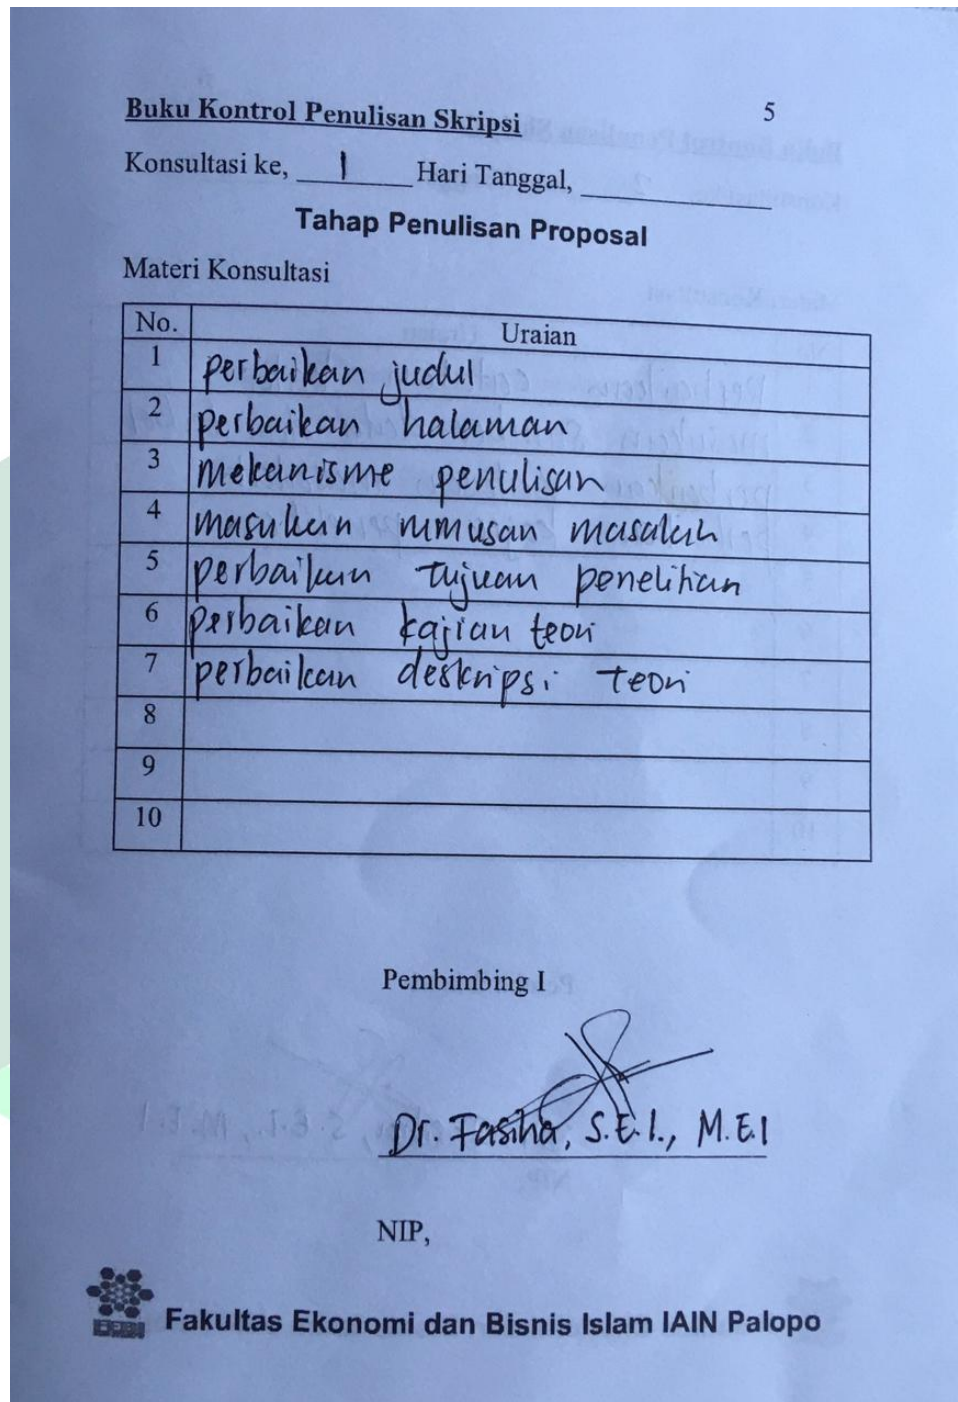 Buku Kontrol Penulisan Skripsi 5
Konsultasi ke, 1 Hari Tanggal,
Tahap Penulisan Proposal
Materi Konsultasi
No. Uraian
1 perbaikan judul
2 perbaikan halaman
3 mekanisme penulisan
4 masukan rumusan masalah
5 perbaikan tujuan penelitian
6 perbaikan kajian teori
7 perbaikan deskripsi teori
8
9
10
Pembimbing I
Dr. Fasiha, S.E.I., M.E.I
NIP,
FEBI
Fakultas Ekonomi dan Bisnis Islam IAIN Palopo